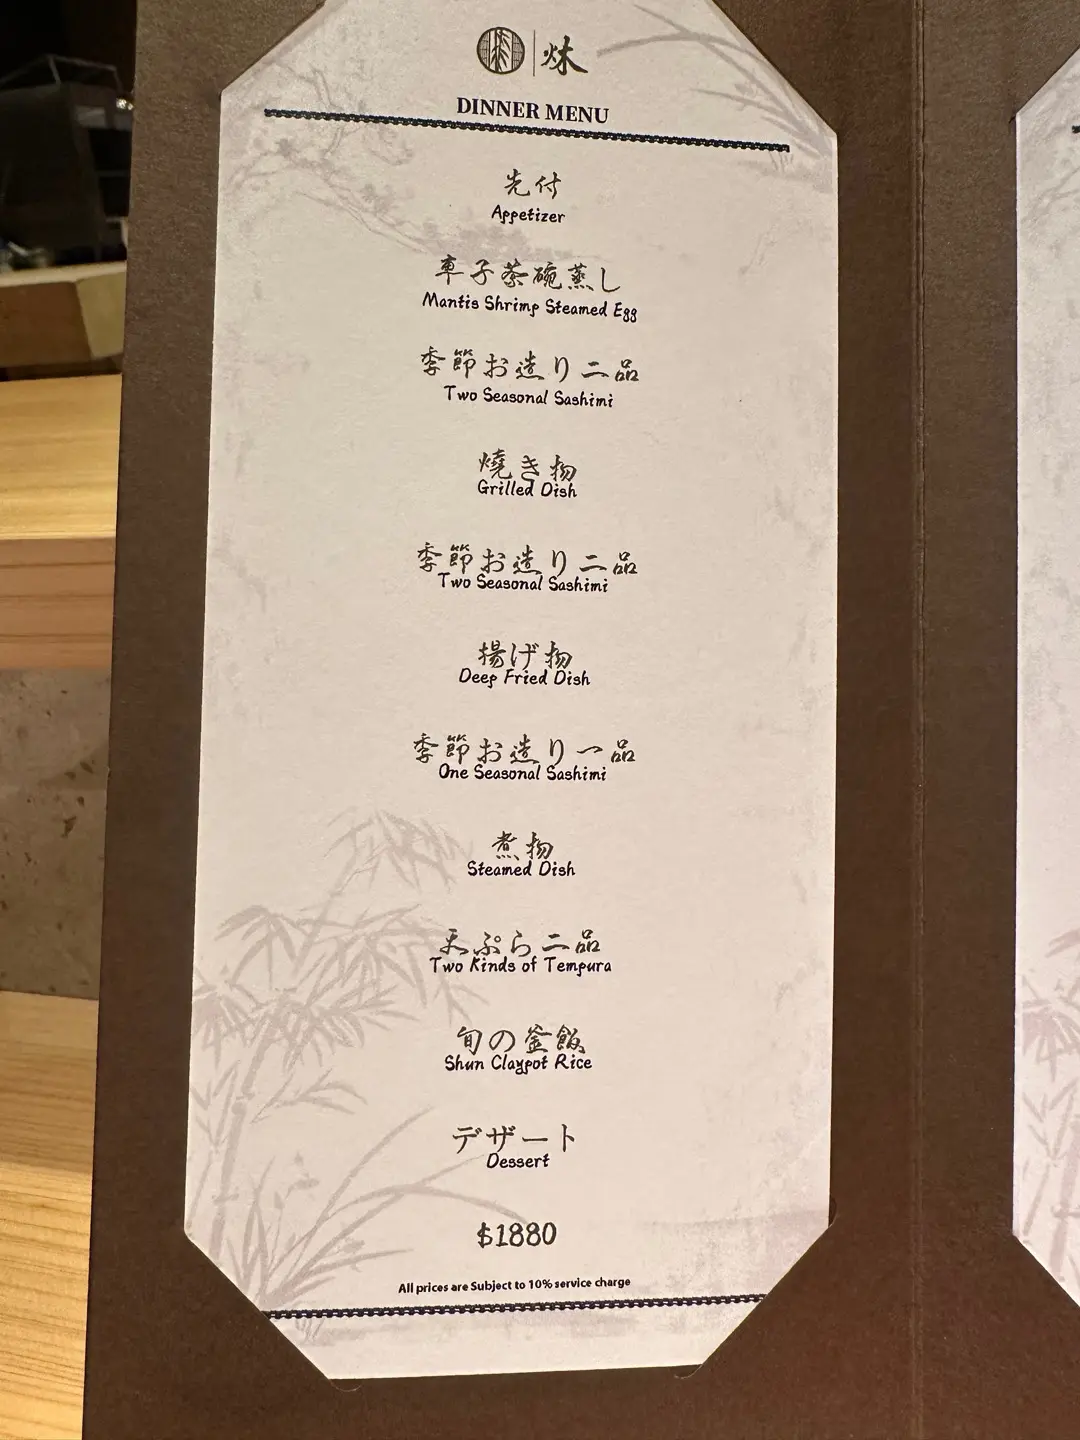 烌
DINNER MENU
先付
Appetizer
車子茶碗蒸し
Mantis Shrimp Steamed Egg
季節お造り二品
Two Seasonal Sashimi
燒き物
Grilled Dish
季節お造り二品
Two Seasonal Sashimi
揚げ物
Deep Fried Dish
季節お造り一品
One Seasonal Sashimi
煮物
Steamed Dish
天ぷら二品
Two Kinds of Tempura
旬の釜飯
Shun Claypot Rice
デザート
Dessert
$1880
All prices are Subject to 10% service charge